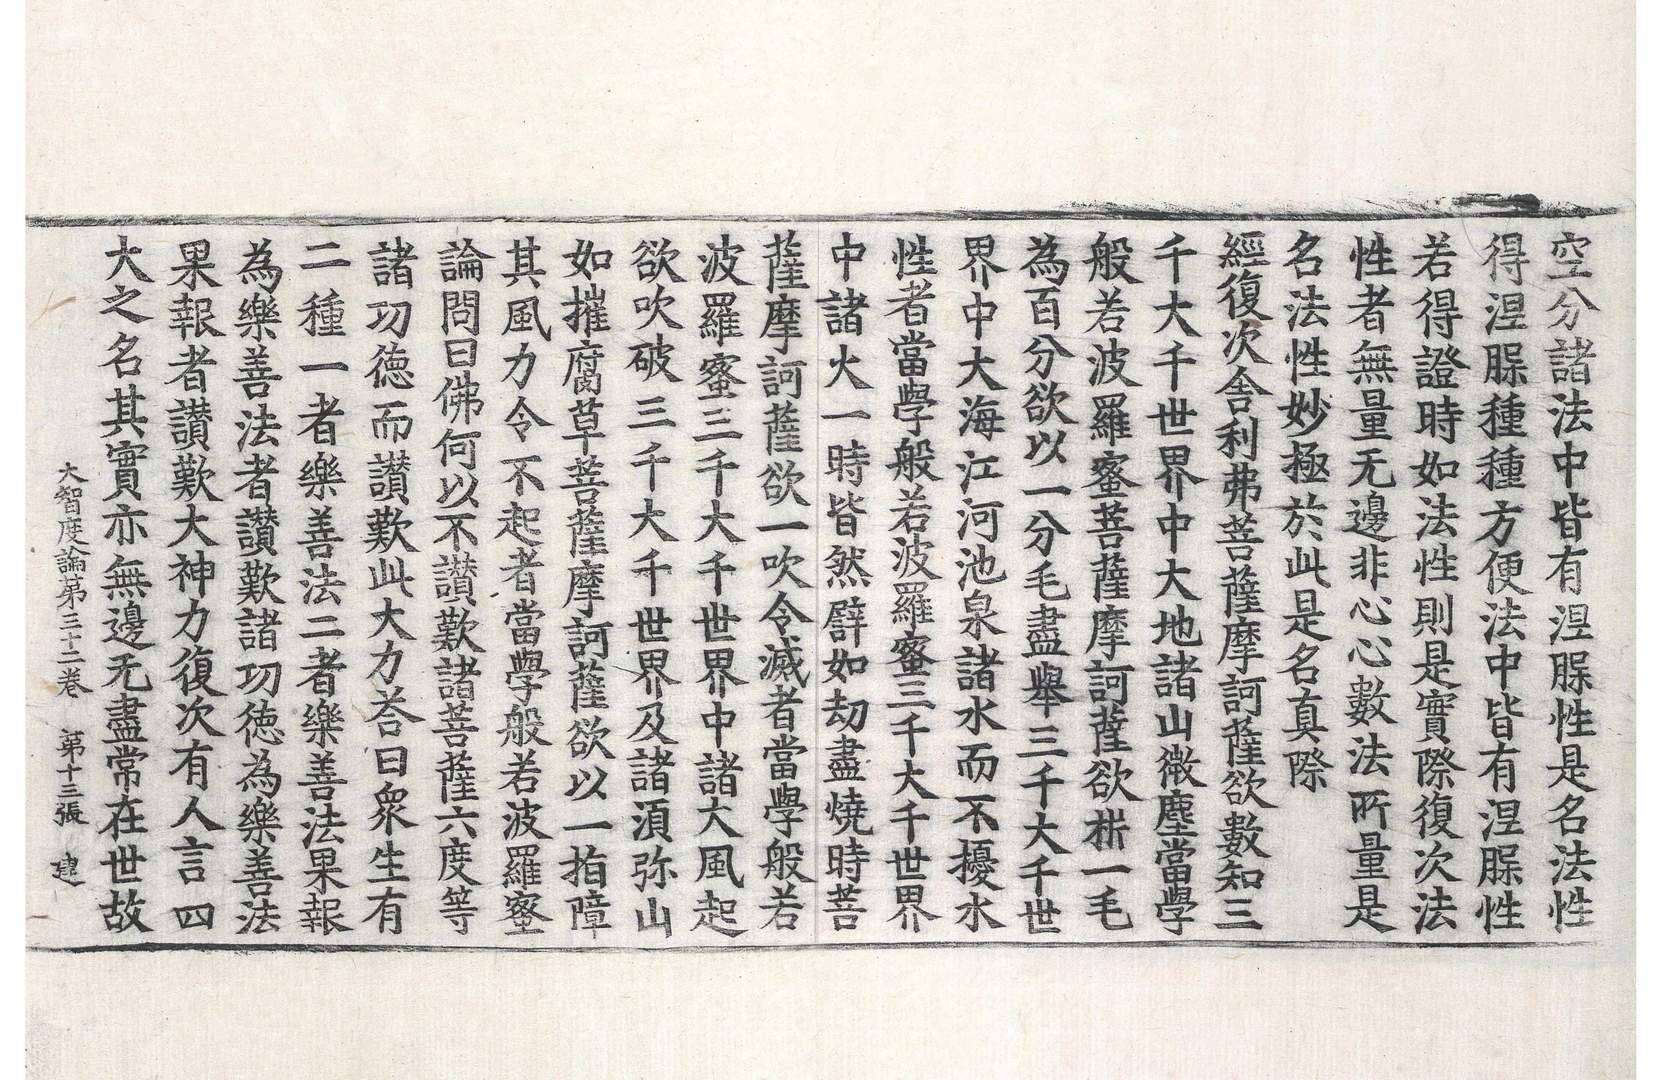 空分諸法中皆有涅脲性是名法性
得涅脲種種方便法中皆有涅脲性
若得證時如法性則是實際復次法
性者無量无邊非心心數法所量是
名法性妙極於此是名真際
經復次舍利弗菩薩摩訶薩欲數知三
千大千世界中大地諸山微塵當學
般若波羅蜜菩薩摩訶薩欲析一毛
為百分欲以一分毛盡舉三千大千世
界中大海江河池泉諸水而不擾水
性者當學般若波羅蜜三千大千世界
中諸火一時皆然辟如劫盡燒時菩
薩摩訶薩欲一吹令滅者當學般若
波羅蜜三千大千世界中諸大風起
欲吹破三千大千世界及諸須弥山
如摧腐草菩薩摩訶薩欲以一指障
其風力令不起者當學般若波羅蜜
論問曰佛何以不讃歎諸菩薩六度等
諸功德而讃歎此大力荅曰衆生有
二種一者樂善法二者樂善法果報
為樂善法者讃歎諸功德為樂善法
果報者讃歎大神力復次有人言四
大之名其實亦無邊无盡常在世故
大智度論第三十二卷 第十三張 建